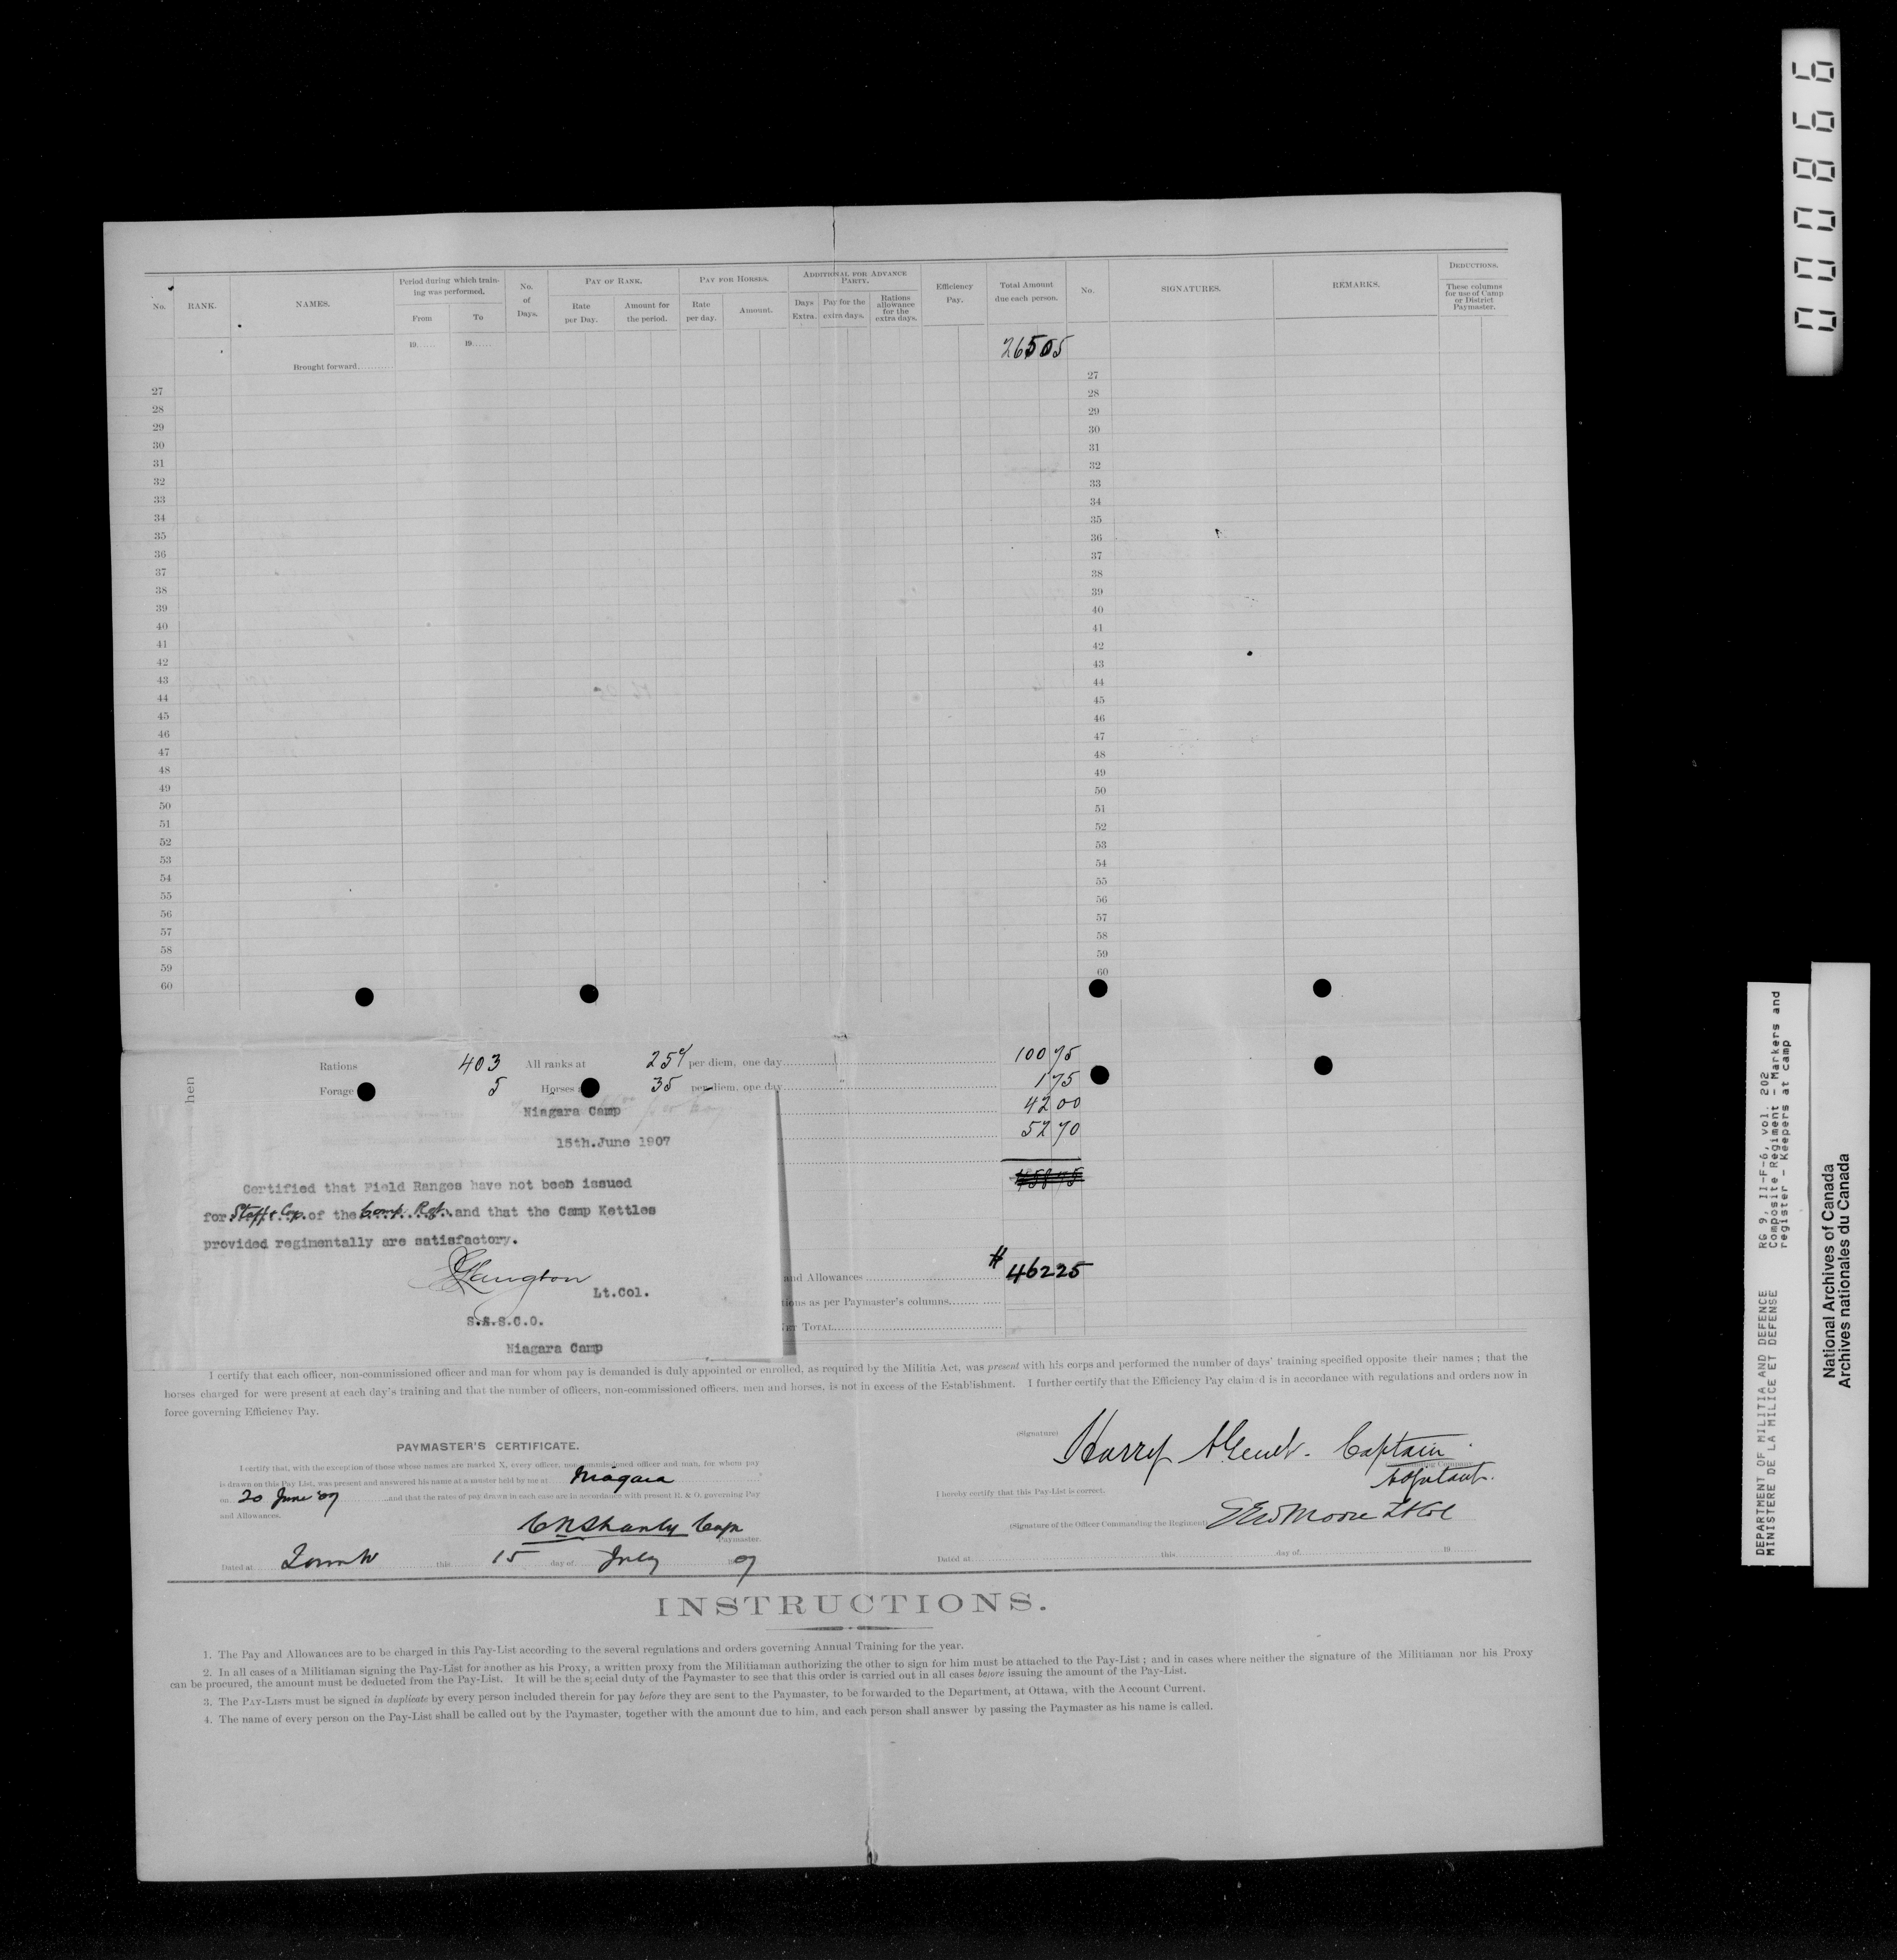 000866
No. RANK. NAMES. Period during which training was performed. From To No. of Days. PAY OF RANK. Rate per Day. Amount for the period. PAY FOR HORSES. Rate per day. Amount. ADDITIONAL FOR ADVANCE PARTY. Days Extra. Pay for the extra days. Rations allowance for the extra days. Efficiency Pay. Total Amount due each person. No. SIGNATURES. REMARKS. DEDUCTIONS. These columns for use of Camp or District Paymaster.
19...... 19......
Brought forward.......... 26505
27 27
28 28
29 29
30 30
31 31
32 32
33 33
34 34
35 35
36 36
37 37
38 38
39 39
40 40
41 41
42 42
43 43
44 44
45 45
46 46
47 47
48 48
49 49
50 50
51 51
52 52
53 53
54 54
55 55
56 56
57 57
58 58
59 59
60 60
hen
Rations 403 All ranks at 25¢ per diem, one day 100 75
Forage 5 Horses 35 per diem, one day 1 75
42 00
52 70
Niagara Camp
15th.June 1907
Certified that Field Ranges have not been issued
for Staff & Cop. of the Comp. Rgt. and that the Camp Kettles
provided regimentally are satisfactory.
Langton
Lt.Col.
S.A.S.C.O.
Niagara Camp
and Allowances # 46225
tions as per Paymaster's columns
ET TOTAL
I certify that each officer, non-commissioned officer and man for whom pay is demanded is duly appointed or enrolled, as required by the Militia Act, was present with his corps and performed the number of days' training specified opposite their names ; that the
horses charged for were present at each day's training and that the number of officers, non-commissioned officers, men and horses, is not in excess of the Establishment. I further certify that the Efficiency Pay claim d is in accordance with regulations and orders now in
force governing Efficiency Pay.
PAYMASTER'S CERTIFICATE.
I certify that, with the exception of those whose names are marked X, every officer, non-commissioned officer and man, for whom pay
is drawn on this Pay List, was present and answered his name at a muster held by me at Niagara
on 20 June 07 and that the rates of pay drawn in each case are in accordance with present R. & O. governing Pay
and Allowances.
C N Shanly Cap
Paymaster.
Dated at this 15 day of July 07
(Signature) Harry Captain
Commanding Company
Adjutant.
I hereby certify that this Pay-List is correct.
(Signature of the Officer Commanding the Regiment) Moore Lt Col
Dated at this day of 19
INSTRUCTIONS.
1. The Pay and Allowances are to be charged in this Pay-List according to the several regulations and orders governing Annual Training for the year.
2. In all cases of a Militiaman signing the Pay-List for another as his Proxy, a written proxy from the Militiaman authorizing the other to sign for him must be attached to the Pay-List ; and in cases where neither the signature of the Militiaman nor his Proxy
can be procured, the amount must be deducted from the Pay-List. It will be the special duty of the Paymaster to see that this order is carried out in all cases before issuing the amount of the Pay-List.
3. The PAY-LISTS must be signed in duplicate by every person included therein for pay before they are sent to the Paymaster, to be forwarded to the Department, at Ottawa, with the Account Current.
4. The name of every person on the Pay-List shall be called out by the Paymaster, together with the amount due to him, and each person shall answer by passing the Paymaster as his name is called.
DEPARTMENT OF MILITIA AND DEFENCE
MINISTERE DE LA MILICE ET DEFENSE
RG 9, II-F-6, vol. 202
Composite Regiment - Markers and
register - Keepers at camp
National Archives of Canada
Archives nationales du Canada